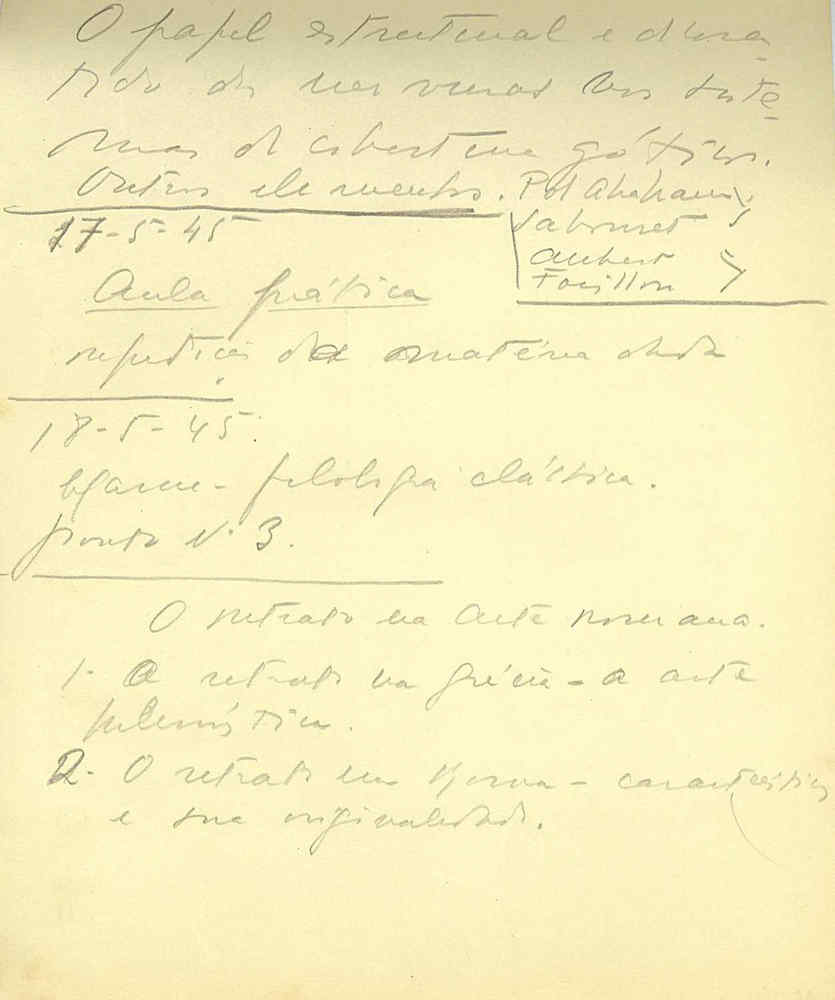 O papel estructural e decora-
tivo das nervuras nos siste-
mas de cobertura góticos.
Outros elementos. Pol Abraham
Sabouret
Aubert
Focillon
17-5-45
Aula prática
repetição da matéria dada
18-5-45.
Exame - filologia clássica.
Ponto N. 3.
O retrato na arte romana.
1. O retrato na Grécia - a arte
helenística.
2. O retrato em Roma - características
e sua originalidade.